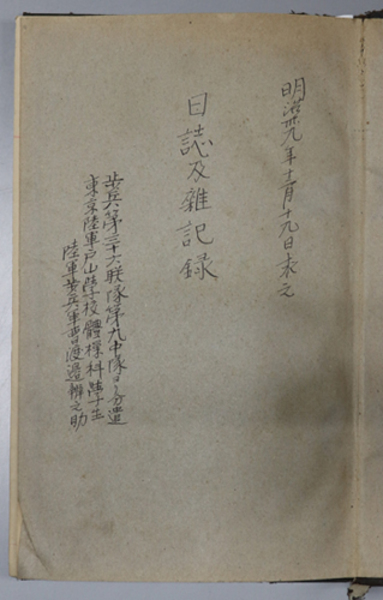 明治卅九年十二月十九日求之
日誌及雑記録
歩兵第三十六联隊第九中隊ヨリ分遣
東京陸軍戸山学校體操科学生
陸軍歩兵軍曹渡邉辨之助